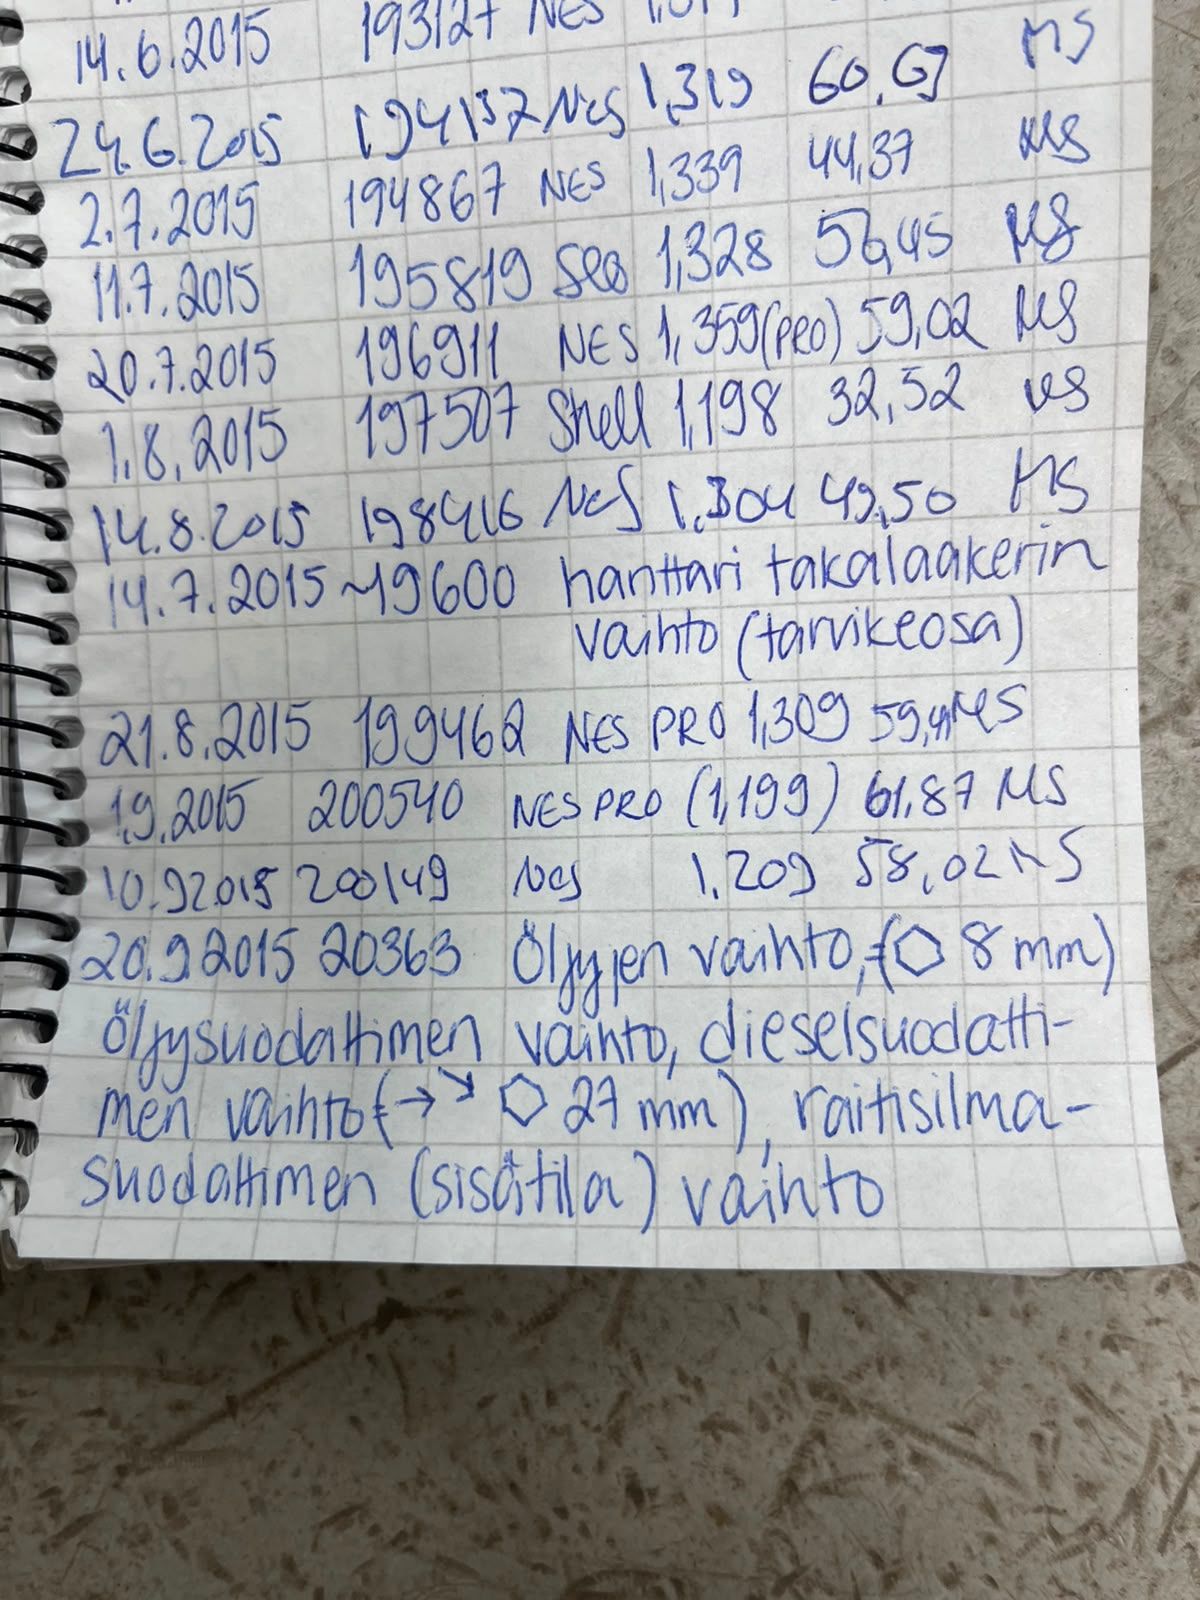 14.6.2015 193127 NES
24.6.2015 194132 Nes 1,319 60,67 MS
2.7.2015 194867 NES 1,339 44,37 MS
11.7.2015 195819 SEO 1,328 56,45 MS
20.7.2015 196911 NES 1,359 (PRO) 59,02 MS
1.8.2015 197507 Shell 1,198 32,52 MS
14.8.2015 198416 Nes 1,304 49,50 MS
14.7.2015 ~19600 hanttari takalaakerin
vaihto (tarvikeosa)
21.8.2015 199462 NES PRO 1,309 59,41 MS
1.9.2015 200540 NES PRO (1,199) 61,87 MS
10.92015 200149 Nes 1.209 58,02 MS
20.9.2015 20363 Öljyjen vaihto, (⬡ 8 mm)
Öljysuodattimen vaihto, dieselsuodatti-
men vaihto (→ ↘ ⬡ 27 mm), raitisilma-
suodattimen (sisätila) vaihto